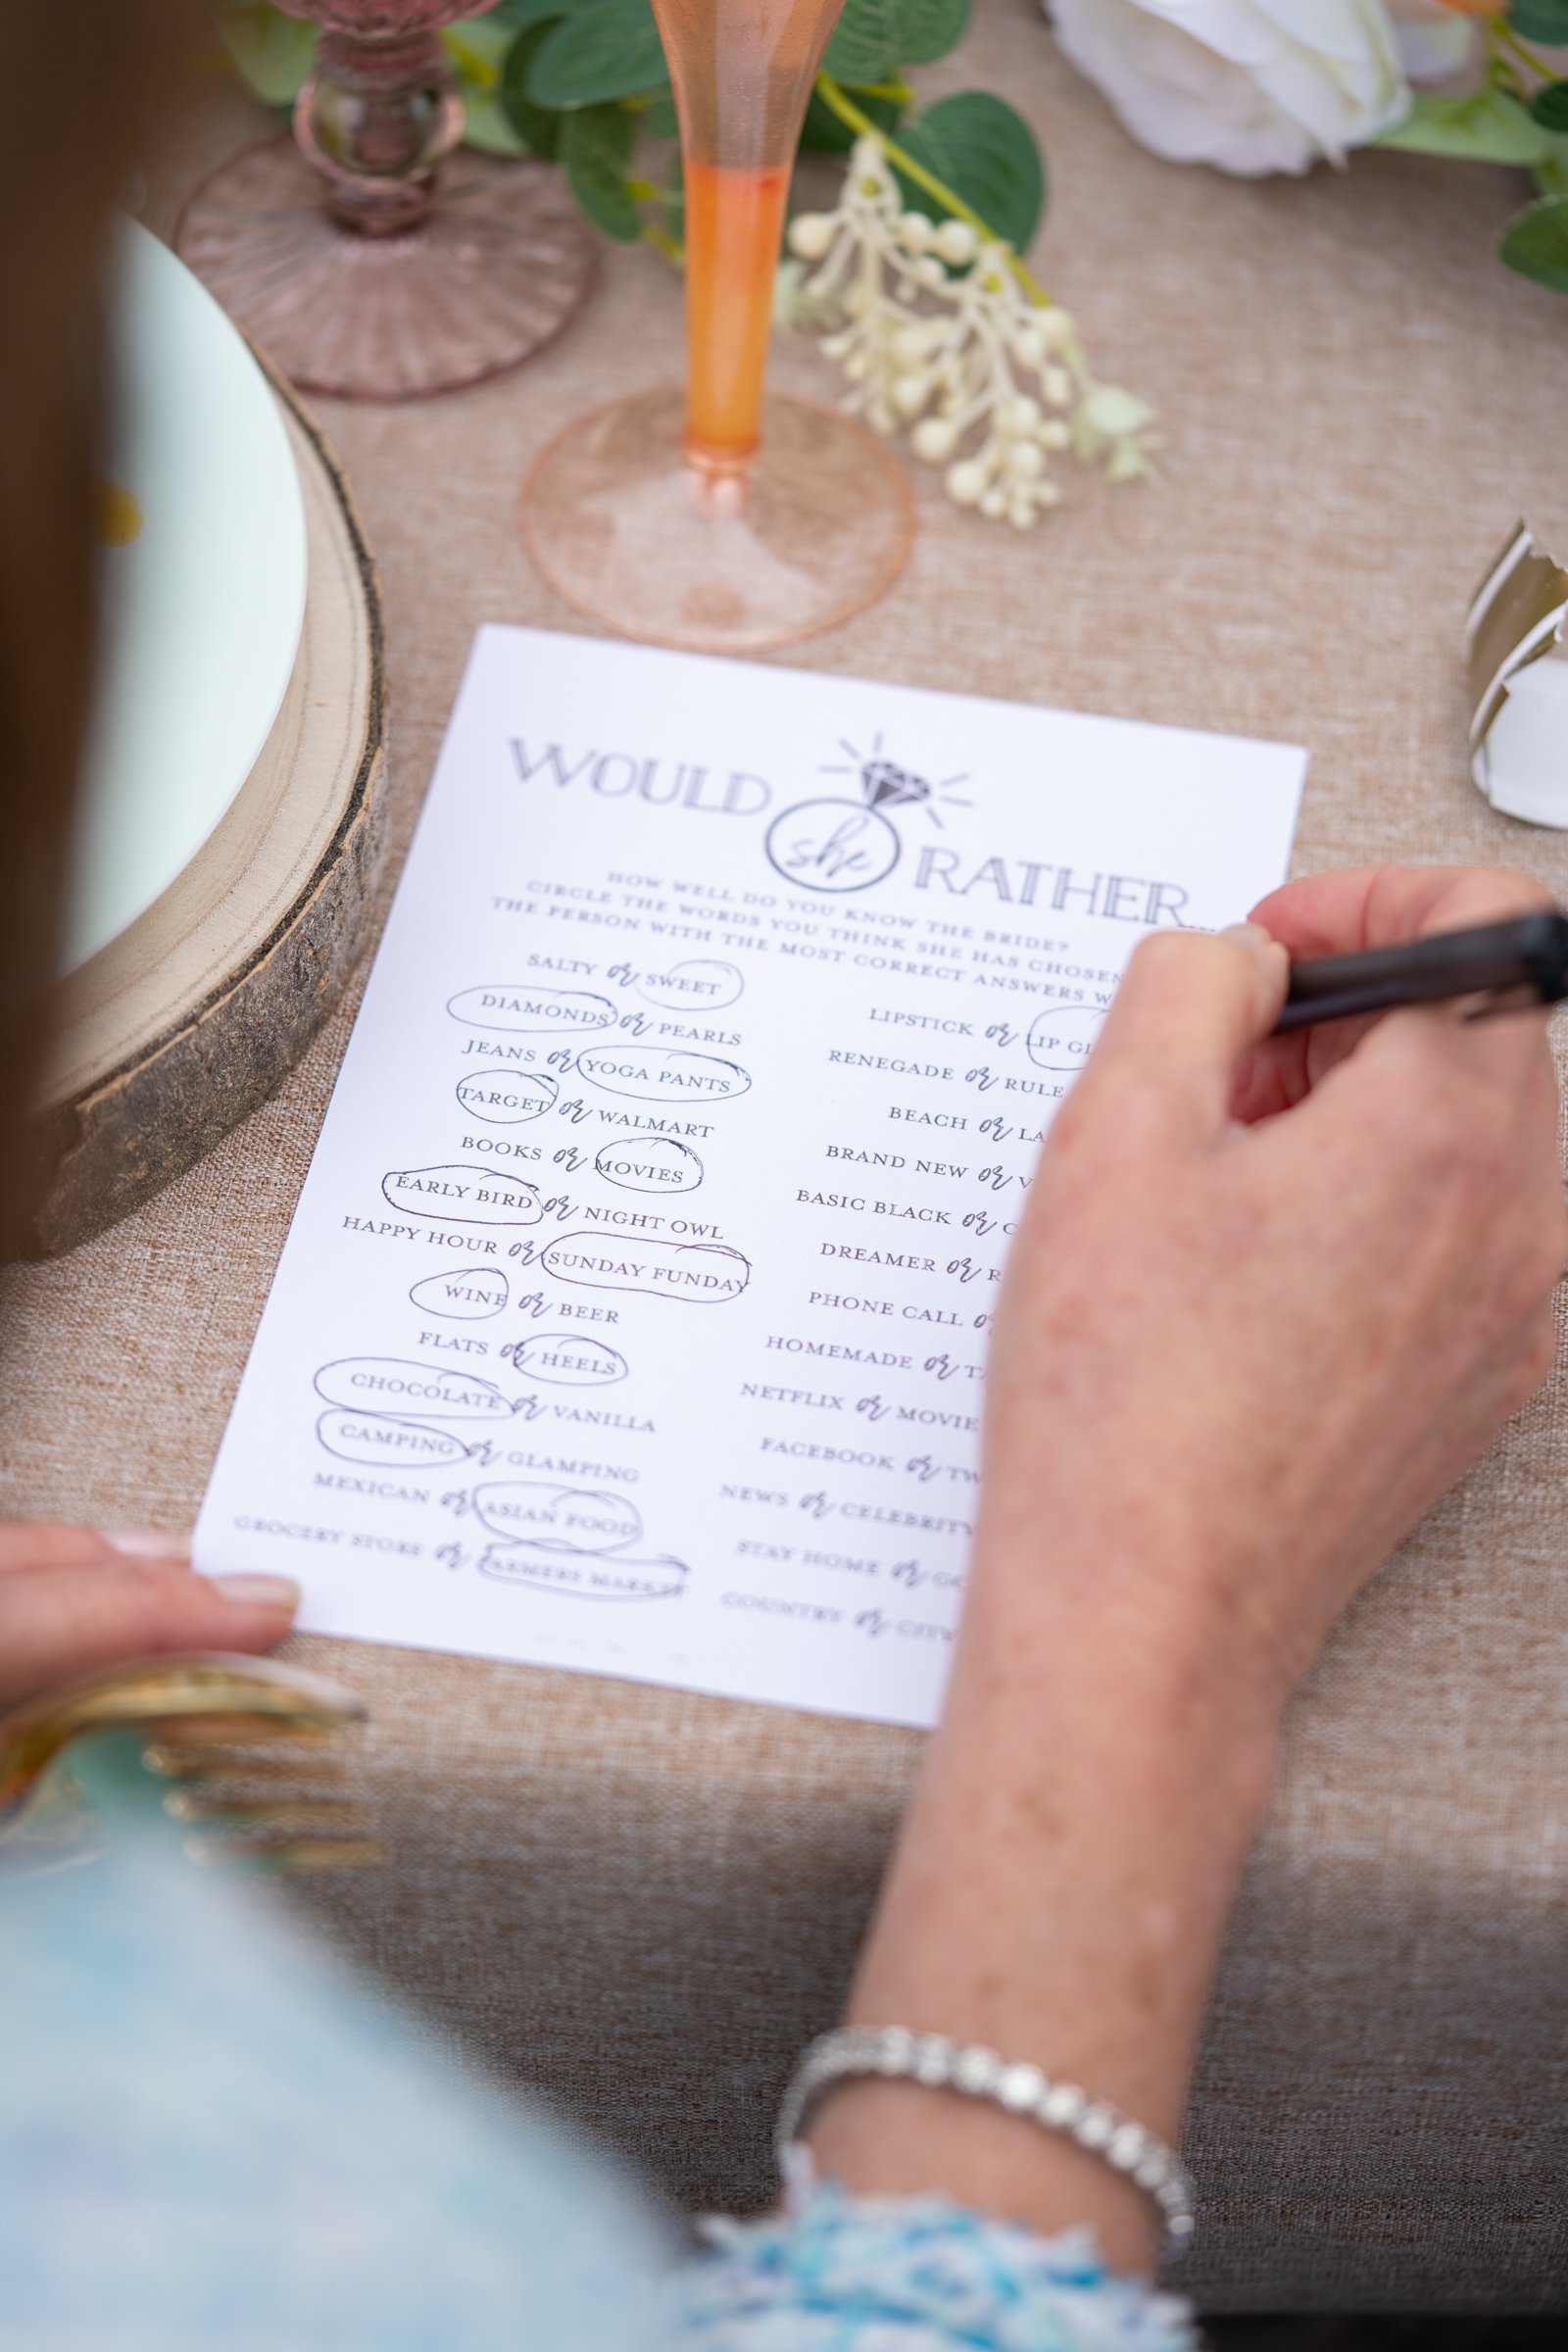 WOULD she RATHER...
HOW WELL DO YOU KNOW THE BRIDE?
CIRCLE THE WORDS YOU THINK SHE HAS CHOSEN
THE PERSON WITH THE MOST CORRECT ANSWERS
SALTY or SWEET
DIAMONDS or PEARLS
JEANS or YOGA PANTS
TARGET or WALMART
BOOKS or MOVIES
EARLY BIRD or NIGHT OWL
HAPPY HOUR or SUNDAY FUNDAY
WINE or BEER
FLATS or HEELS
CHOCOLATE or VANILLA
CAMPING or GLAMPING
MEXICAN or ASIAN FOOD
GROCERY STORE or FARMERS MARKET
LIPSTICK or LIP
RENEGADE or RULE
BEACH or
BRAND NEW or
BASIC BLACK or
DREAMER or
PHONE CALL or
HOMEMADE or
NETFLIX or MOVIE
FACEBOOK or
NEWS or CELEBRITY
STAY HOME or
COUNTRY or CITY